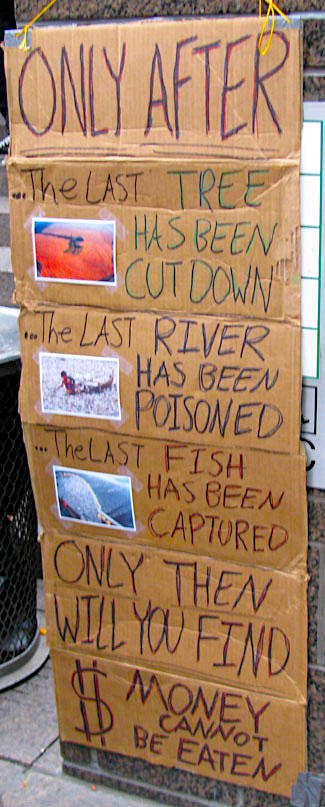 ONLY AFTER
...The LAST TREE
HAS BEEN
CUT DOWN
...The LAST RIVER
HAS BEEN
POISONED
...The LAST FISH
HAS BEEN
CAPTURED
ONLY THEN
WILL YOU FIND
$ MONEY
CANNOT
BE EATEN